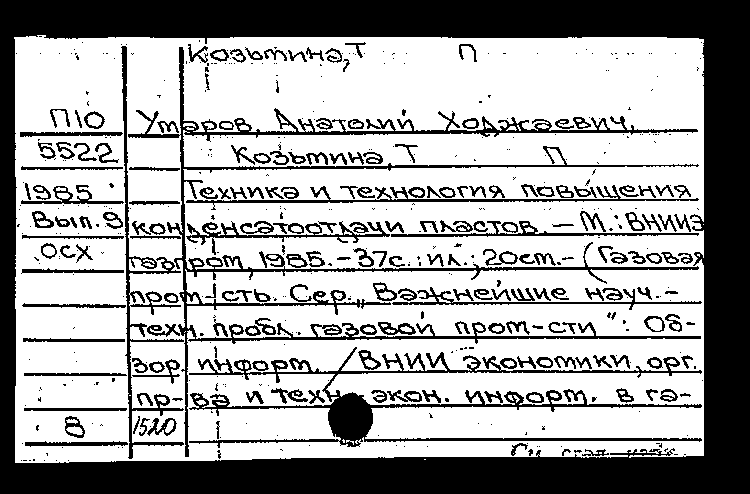 Козьмина, Т П
П10 Умаров, Анатолий Ходжаевич,
5522 Козьмина, Т П
1985 Техника и технология повышения
Вып. 9 конденсатоотдачи пластов. – М.: ВНИИЭ
осх газпром, 1985. – 37с.: ил.; 20см. – (Газовая
пром-сть. Сер. „Важнейшие науч.-
техн. пробл. газовой пром-сти": Об-
зор. информ. / ВНИИ экономики, орг.
пр-ва и техн.-экон. информ. в га-
8 1520
См. след.